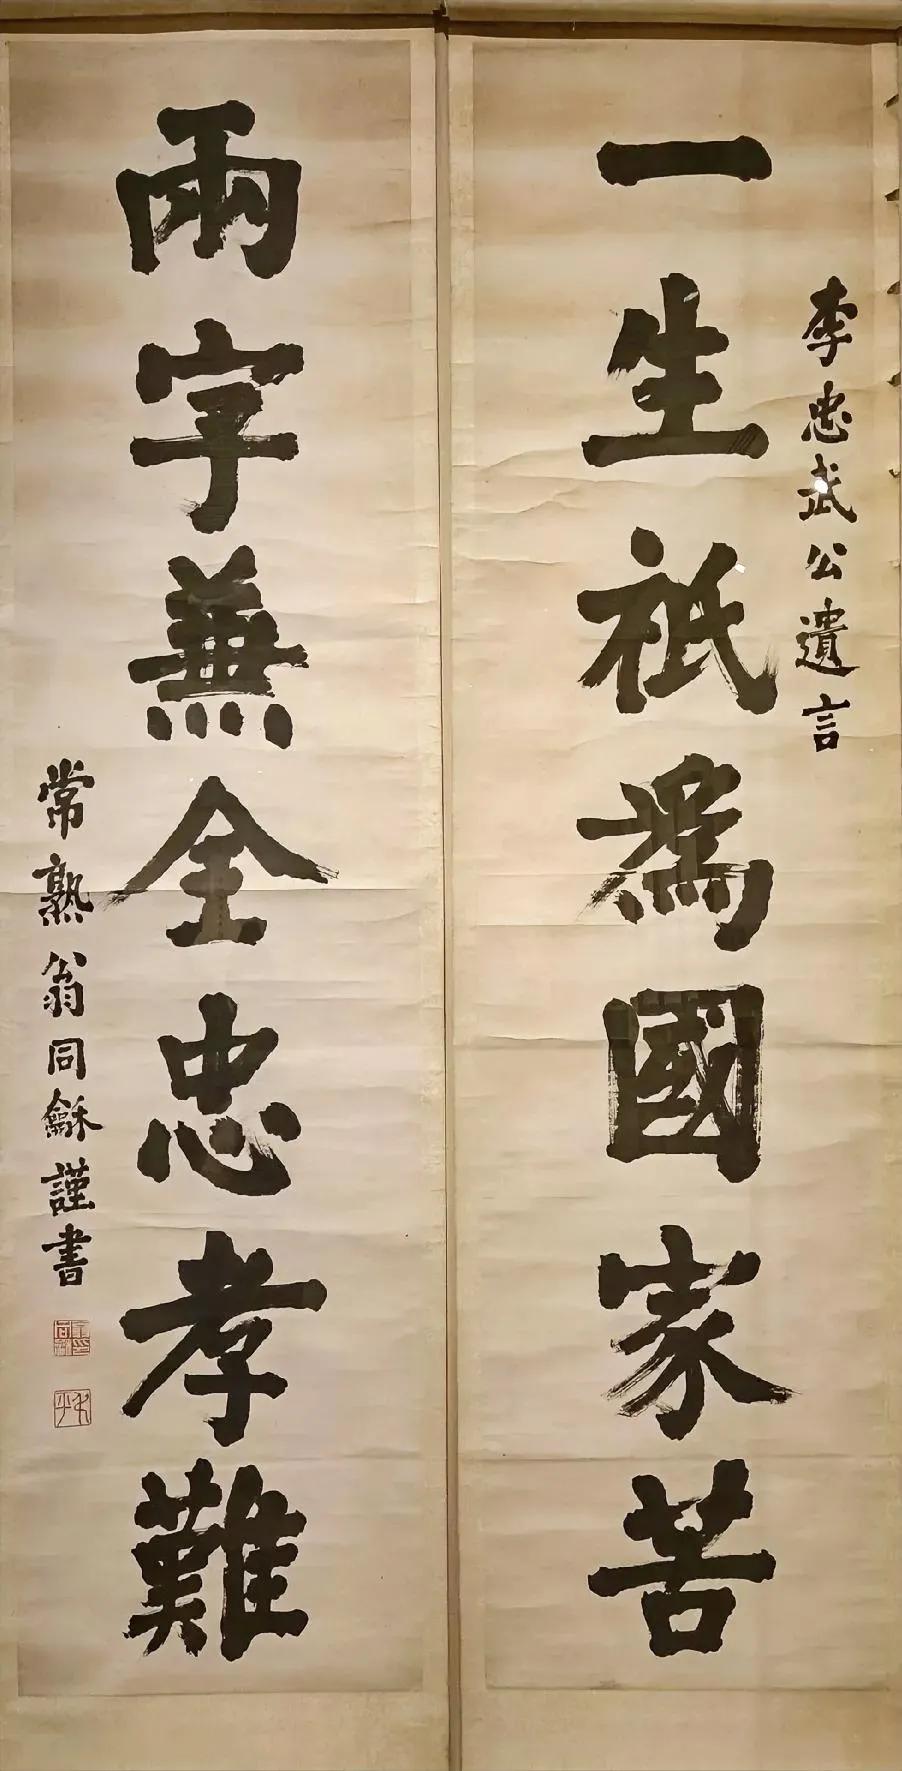 李忠武公遺言
一生祇為國家苦
兩字兼全忠孝難
常熟翁同龢謹書